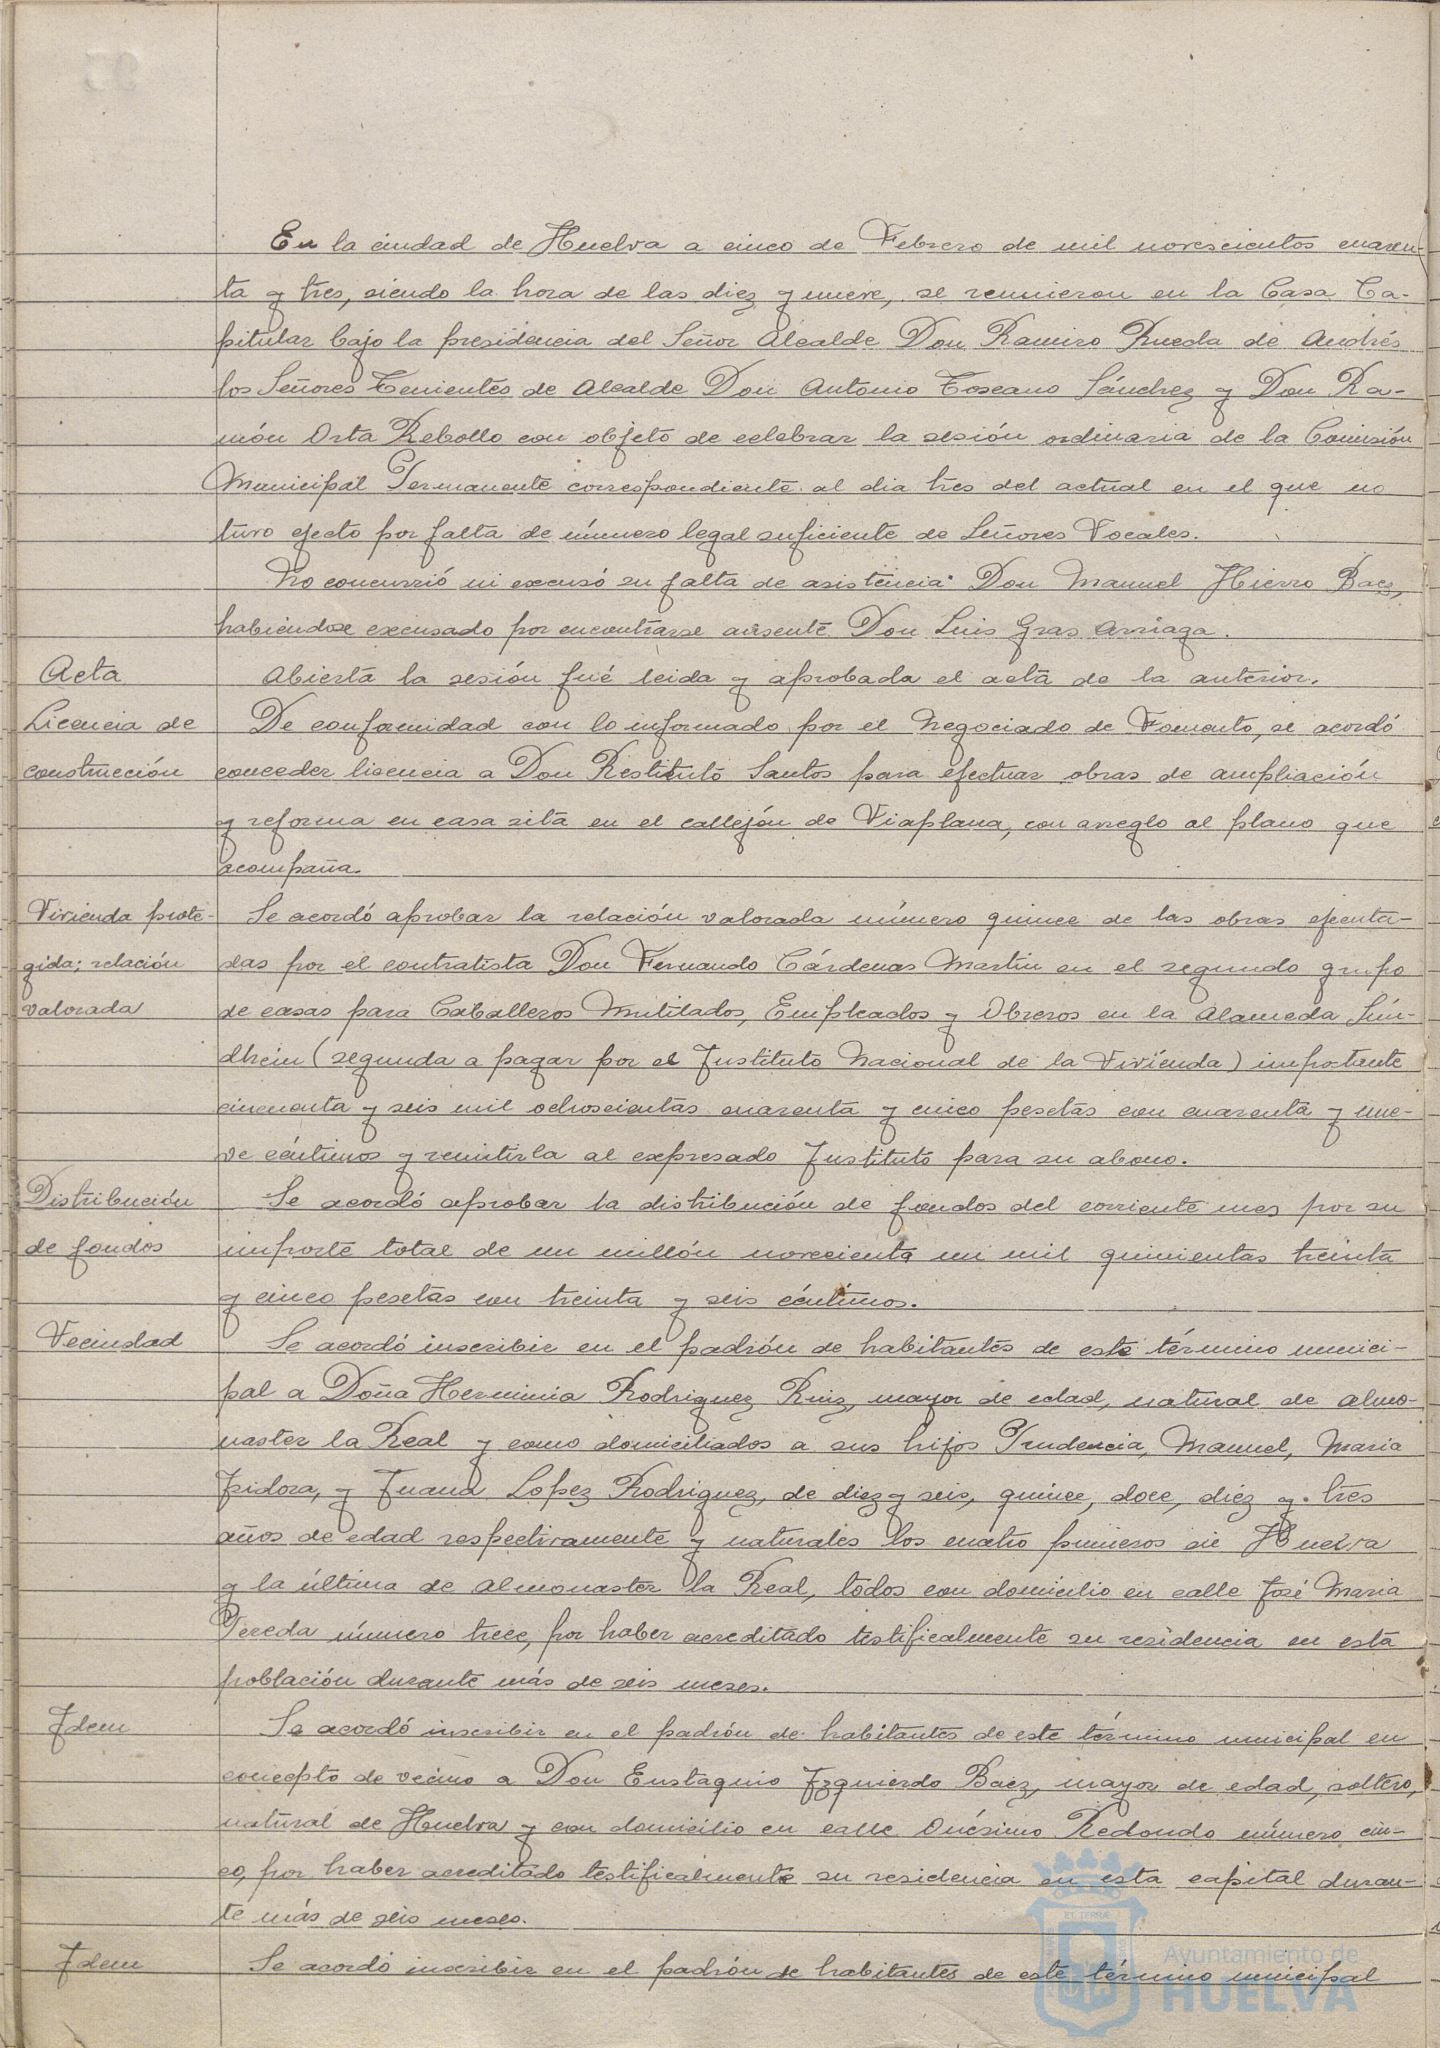 En la ciudad de Huelva a cinco de Febrero de mil novescientos cuaren-
ta y tres, siendo la hora de las diez y nueve, se reunieron en la Casa Ca-
pitular bajo la presidencia del Señor Alcalde Don Ramiro Rueda de Andrés
los Señores Tenientes de Alcalde Don Antonio Toscano Sánchez y Don Ra-
món Orta Rebollo con objeto de celebrar la sesión ordinaria de la Comisión
Municipal Permanente correspondiente al dia tres del actual en el que no
tuvo efecto por falta de número legal suficiente de Señores Vocales.
No concurrió ni excusó su falta de asistencia Don Manuel Hierro Baez,
habiendose excusado por encontrarse ausente Don Luis Gras Arriaga.
Acta
Abierta la sesión fué leida y aprobada el acta de la anterior.
Licencia de
construcción
De conformidad con lo informado por el Negociado de Fomento, se acordó
conceder licencia a Don Restituto Santos para efectuar obras de ampliación
y reforma en casa sita en el callejón de Viaplana, con arreglo al plano que
acompaña.
Vivienda prote-
gida; relación
valorada
Se acordó aprobar la relación valorada número quince de las obras ejecuta-
das por el contratista Don Fernando Cárdenas Martin en el segundo grupo
de casas para Caballeros Mutilados, Empleados y Obreros en la Alameda Sun-
dhein (segunda a pagar por el Instituto Nacional de la Vivienda) importante
cincuenta y seis mil ochoscientas cuarenta y cinco pesetas con cuarenta y nue-
ve céntimos y remitirla al expresado Instituto para su abono.
Distribución
de fondos
Se acordó aprobar la distribución de fondos del corriente mes por su
importe total de un millón un mil quinientas treinta
y cinco pesetas con treinta y seis céntimos.
Vecindad
Se acordó inscribir en el padrón de habitantes de este término munici-
pal a Doña Herminia Rodriguez Ruiz, mayor de edad, natural de Almo-
naster la Real y como domiciliados a sus hijos Prudencia, Manuel, Maria
Isidora, y Juana Lopez Rodriguez, de diez y seis, quince, doce, diez y tres
años de edad respectivamente y naturales los cuatro primeros de Huelva
y la última de Almonaster la Real, todos con domicilio en calle José Maria
Pereda número trece, por haber acreditado testificalmente su residencia en esta
población durante más de seis meses.
Idem
Se acordó inscribir en el padrón de habitantes de este término municipal en
concepto de vecino a Don Eustaquio Izquierdo Baez, mayor de edad, soltero,
natural de Huelva y con domicilio en calle Onésimo Redondo número cin-
co, por haber acreditado testificalmente su residencia en esta capital duran-
te más de seis meses.
Idem
Se acordó inscribir en el padrón de habitantes de este término municipal
Ayuntamiento de
HUELVA